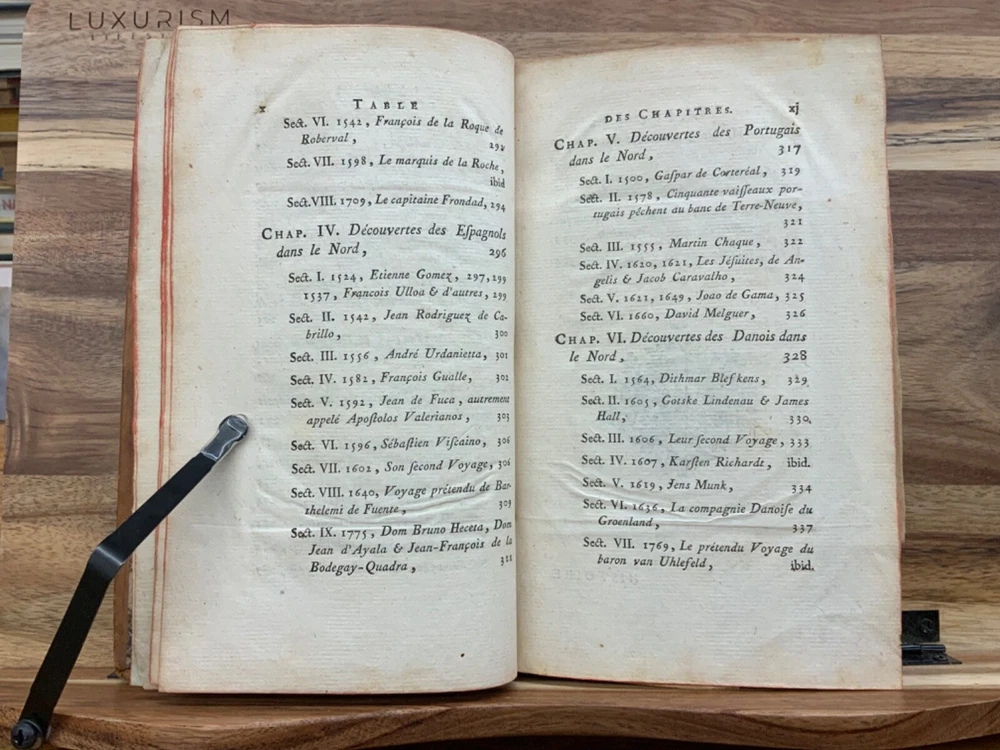 LUXURISM
x
TABLE
Sect. VI. 1542, François de la Roque de
Roberval,
292
Sect. VII. 1598, Le marquis de la Roche,
ibid
Sect. VIII. 1709, Le capitaine Frondad, 294
CHAP. IV. Découvertes des Eſpagnols
dans le Nord, 296
Sect. I. 1524, Etienne Gomez, 297,299
1537, Francois Ulloa & d'autres, 299
Sect. II. 1542, Jean Rodriguez de Ca-
brillo, 300
Sect. III. 1556, André Urdanietta, 301
Sect. IV. 1582, François Gualle, 302
Sect. V. 1592, Jean de Fuca, autrement
appelé Apoſtolos Valerianos, 303
Sect. VI. 1596, Sébaſtien Viſcaino, 306
Sect. VII. 1602, Son ſecond Voyage, 306
Sect. VIII. 1640, Voyage prétendu de Bar-
thelemi de Fuente, 309
Sect. IX. 1775, Dom Bruno Heceta, Dom
Jean d'Ayala & Jean-François de la
Bodegay-Quadra, 311
DES CHAPITRES. xj
CHAP. V. Découvertes des Portugais
dans le Nord, 317
Sect. I. 1500, Gaſpar de Cortéréal, 319
Sect. II. 1578, Cinquante vaiſſeaux por-
tugais pêchent au banc de Terre-Neuve,
321
Sect. III. 1555, Martin Chaque, 322
Sect. IV. 1620, 1621, Les Jéſuites, de An-
gelis & Jacob Caravalho, 324
Sect. V. 1621, 1649, Joao de Gama, 325
Sect. VI. 1660, David Melguer, 326
CHAP. VI. Découvertes des Danois dans
le Nord, 328
Sect. I. 1564, Dithmar Blefkens, 329
Sect. II. 1605, Gotske Lindenau & James
Hall, 330
Sect. III. 1606, Leur ſecond Voyage, 333
Sect. IV. 1607, Karſten Richardt, ibid.
Sect. V. 1619, Jens Munk, 334
Sect. VI. 1636, La compagnie Danoiſe du
Groenland, 337
Sect. VII. 1769, Le prétendu Voyage du
baron van Uhlefeld, ibid.